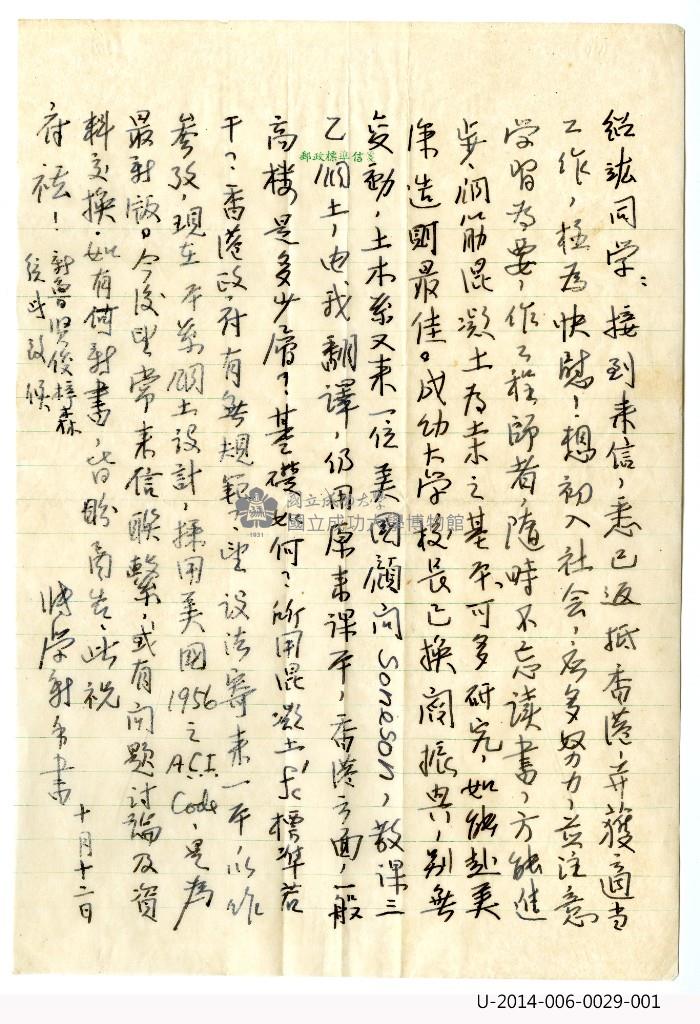 同学：接到来信，悉已返抵香港，并獲適当
工作，極為快慰！想初入社会，应多努力，並注意
学習為要，作工程師者，隨時不忘读書，方能進
步，鋼筋混凝土為土木之基本，可多研究，如能赴美
深造則最佳。成功大学校長已換閻振興，別無
変動，土木系又来一位美国顧问 Soneson，教课三
乙鋼土，由我翻譯，仍用原来课本，香港方面，一般
高楼是多少層？基礎如何？所用混凝土 fc' 標準若
干？香港政府有無規範？望设法寄来一本以作
参攷，現在本系鋼土设計，採用美国 1956 之 A.C.I. Code，是為
最新版。今後望常来信聯繫，或有问題討論及資
料交換。如有何新書，皆盼商告，此祝
府祺！
统此致候
十月十二日
郵政標準信箋
國立成功大學
國立成功大學博物館
1931
U-2014-006-0029-001